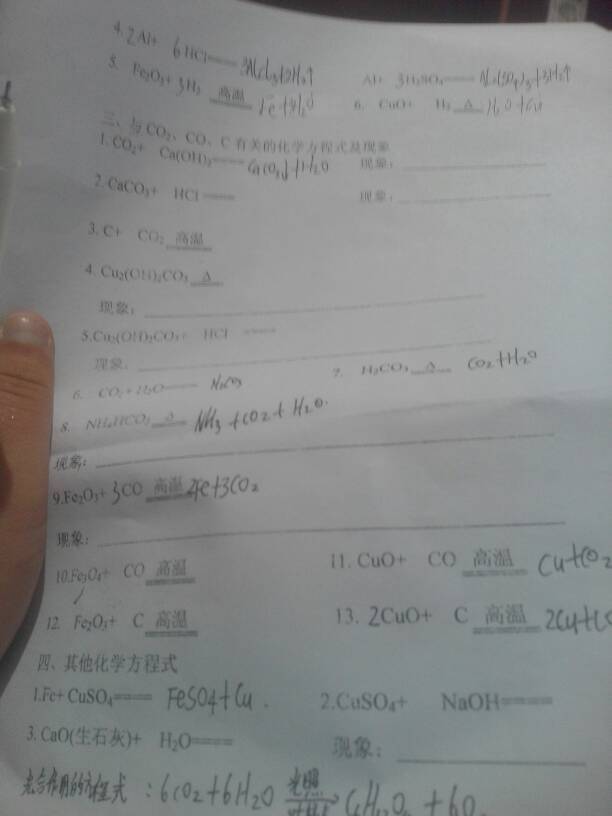 4. 2Al+ 6HCl═══ 2AlCl3+3H2↑ Al+ 3H2SO4═══ Al2(SO4)3+3H2↑
5. Fe2O3+ 3H2 高温 Fe+H2O 6. CuO+ H2 △ H2O+Cu
三、与CO2、CO、C有关的化学方程式及现象
1. CO2+ Ca(OH)2═══ CaCO3↓+H2O 现象:
2. CaCO3+ HCl═══ 现象:
3. C+ CO2 高温
4. Cu2(OH)2CO3 △
现象:
5.Cu2(OH)2CO3+ HCl ═══
现象:
6. CO2+H2O═══ H2CO3 7. H2CO3 △ CO2+H2O
8. NH4HCO3 △ NH3+CO2+H2O.
现象:
9.Fe2O3+ 3CO 高温 2Fe+3CO2
现象:
10.Fe3O4+ CO 高温 11. CuO+ CO 高温 Cu+CO2
12. Fe2O3+ C 高温 13. 2CuO+ C 高温 2Cu+
四、其他化学方程式
1.Fe+CuSO4═══ FeSO4+Cu. 2.CuSO4+ NaOH═══
3. CaO(生石灰)+ H2O═══ 现象:
光合作用的方程式:6CO2+6H2O 光照 C6H12O6+6O2